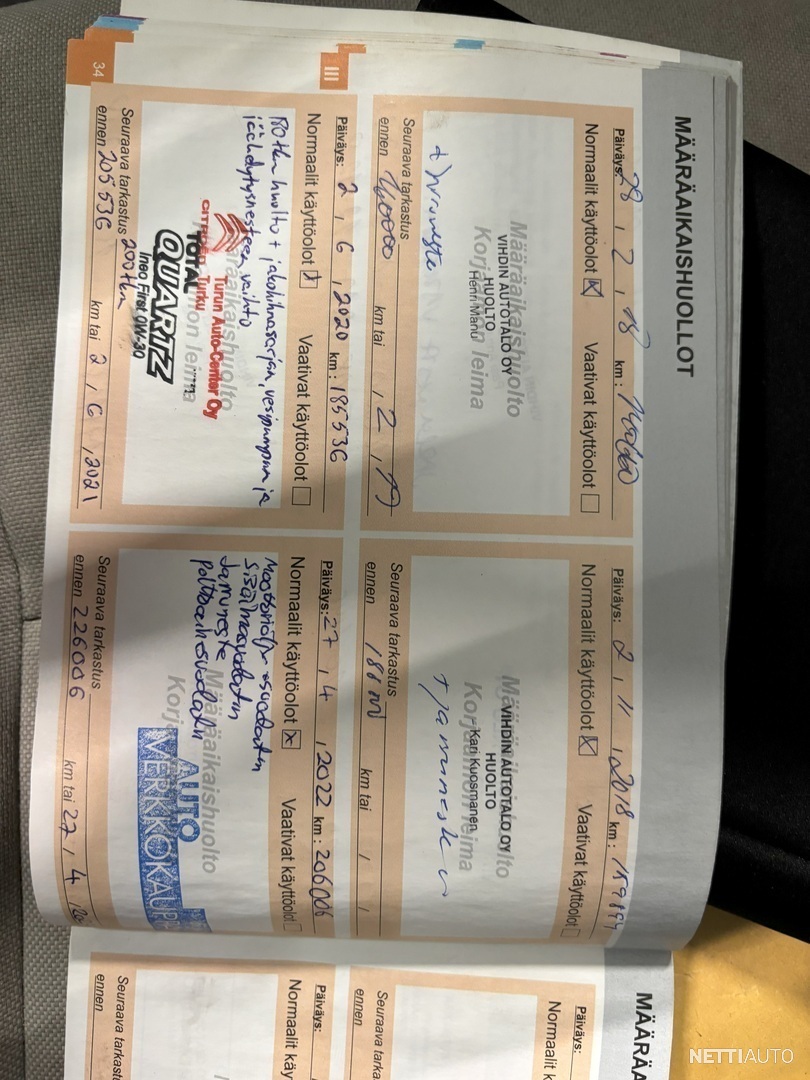 MÄÄRÄAIKAISHUOLLOT
Päiväys: 28 , 2 , 18 km :
Normaalit käyttöolot Vaativat käyttöolot
Määräaikaishuolto
VIHDIN AUTOTALO OY
HUOLTO
Korjaamon leima
Henri Manu
Seuraava tarkastus
ennen km tai , 2 , 19
Päiväys: 2 , 11 , 2018 km :
Normaalit käyttöolot Vaativat käyttöolot
VIHDIN AUTOTALO OY
HUOLTO
Kari Kuosmanen
Seuraava tarkastus
ennen km tai
III
Päiväys: 2 , 6 , 2020 km : 185536
Normaalit käyttöolot Vaativat käyttöolot
180 tkm huolto + jakohihnasarjan, vesipumpun ja
jäähdytysnesteen vaihto
Turun Auto-Center Oy
CITROËN Turku
TOTAL
QUARTZ
Ineo First 0W-30
Seuraava tarkastus 200tkm
ennen 205536 km tai 2 , 6 , 2021
34
Päiväys: 27 , 4 , 2022 km : 206006
Normaalit käyttöolot Vaativat käyttöolot
Moottoriöljy suodatin
Sisäilmansuodatin
Jarruneste
Polttoainesuodatin
Määräaikaishuolto
AUTO
VERKKOKAUPP
Seuraava tarkastus
ennen 226006 km tai 27 , 4
MÄÄRÄA
Päiväys:
Normaalit käy
Seuraava tarka
ennen
Päiväys:
Normaalit käy
Seuraava tarkas
ennen
NETTIAUTO